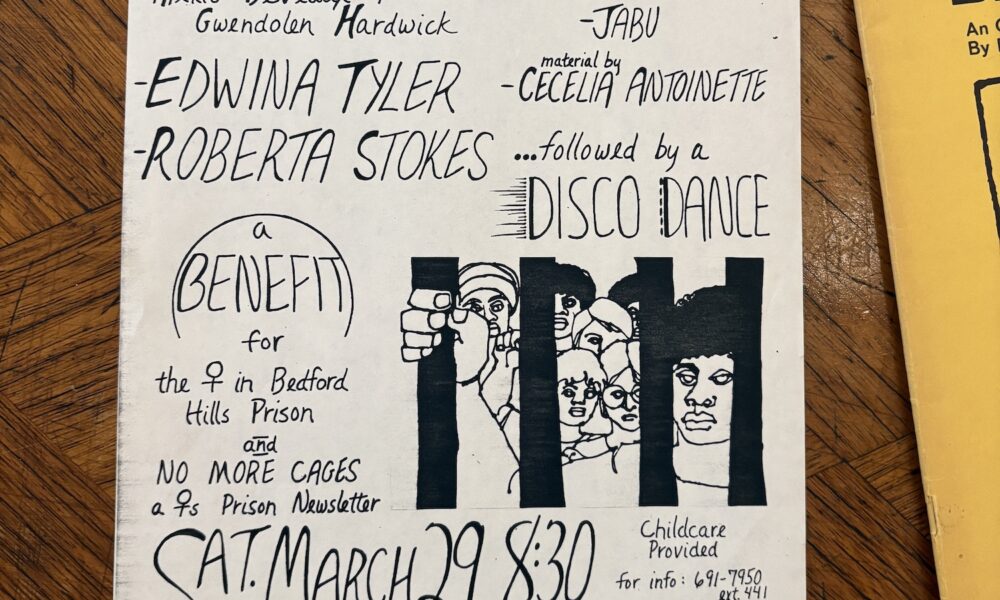 Gwendolen Hardwick
-EDWINA TYLER
-ROBERTA STOKES
-JABU
material by
-CECELIA ANTOINETTE
...followed by a
DISCO DANCE
a
BENEFIT
for
the ♀ in Bedford
Hills Prison
and
NO MORE CAGES
a ♀s Prison Newsletter
SAT. MARCH 29 8:30
Childcare
Provided
for info: 691-7950
ext. 441
An
By